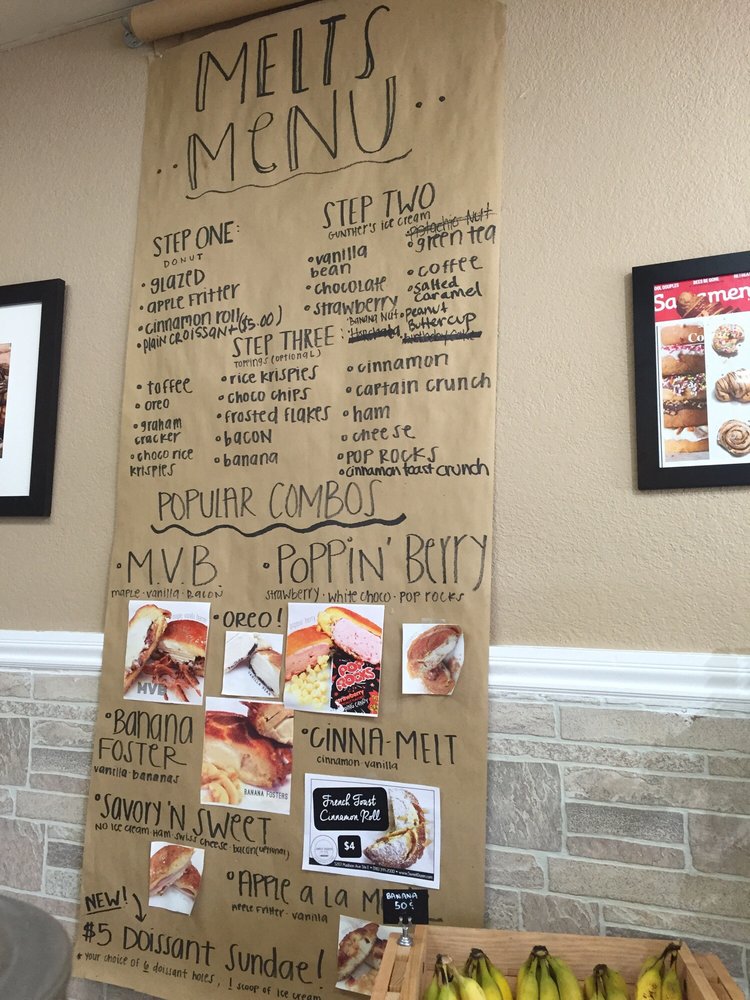 MELTS
MENU
STEP ONE:
DONUT
• GLAZED
• APPLE FRITTER
• CINNAMON ROLL
• PLAIN CROISSANT ($5.00)
STEP TWO
GUNTHER'S ICE CREAM
• VANILLA BEAN
• CHOCOLATE
• STRAWBERRY
BANANA NUT
• Horchata
Pistachio Nut
• GREEN TEA
• COFFEE
• SALTED CARAMEL
• PEANUT BUTTERCUP
Birthday Cake
STEP THREE:
TOPPINGS (OPTIONAL)
• TOFFEE
• OREO
• GRAHAM CRACKER
• CHOCO RICE KRISPIES
• RICE KRISPIES
• CHOCO CHIPS
• FROSTED FLAKES
• BACON
• BANANA
• CINNAMON
• CAPTAIN CRUNCH
• HAM
• CHEESE
• POP ROCKS
• CINNAMON TOAST CRUNCH
POPULAR COMBOS
• M.V.B.
MAPLE · VANILLA · BACON
• POPPIN' BERRY
STRAWBERRY · WHITE CHOCO · POP ROCKS
MVB
• OREO!
POP ROCKS
strawberry
• BANANA FOSTER
VANILLA · BANANAS
BANANA FOSTERS
• CINNA-MELT
CINNAMON · VANILLA
French Toast
Cinnamon Roll
$4
• SAVORY 'N SWEET
NO ICE CREAM · HAM · SWISS CHEESE · BACON (OPTIONAL)
• APPLE A LA M
APPLE FRITTER · VANILLA
BANANA
50¢
NEW!
$5 DOISSANT SUNDAE!
* YOUR CHOICE OF 6 DOISSANT HOLES, 1 SCOOP OF ICE CREAM